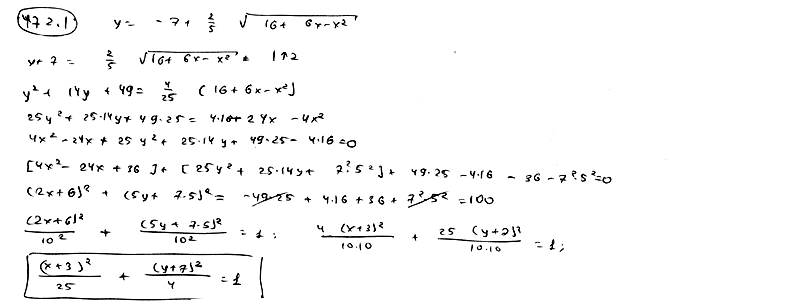 472.1 y = -7 + 2/5 √(16 + 6x - x²)
y + 7 = 2/5 √(16 + 6x - x²) * 1↑2
y² + 14y + 49 = 4/25 (16 + 6x - x²]
25y² + 25·14y + 49·25 = 4·16 + 24x - 4x²
4x² - 24x + 25y² + 25·14y + 49·25 - 4·16 = 0
[4x² - 24x + 36] + [25y² + 25·14y + 7²·5²] + 49·25 - 4·16 - 36 - 7²·5² = 0
(2x+6)² + (5y + 7·5)² = -49·25 + 4·16 + 36 + 7²·5² = 100
(2x+6)²/10² + (5y + 7·5)²/10² = 1; 4 (x+3)²/10·10 + 25 (y+7)²/10·10 = 1;
(x+3)²/25 + (y+7)²/4 = 1